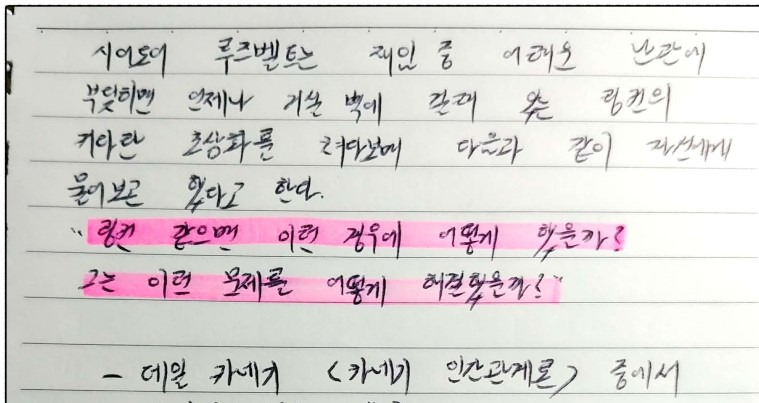 시어도어 루즈벨트는 재임 중 어려운 난관에
부딪히면 언제나 거실 벽에 걸려 있는 링컨의
커다란 초상화를 쳐다보며 다음과 같이 자신에게
물어보곤 했다고 한다.
"링컨 같으면 이런 경우에 어떻게 했을까?
그는 이런 문제를 어떻게 해결했을까?"
- 데일 카네기 <카네기 인간관계론> 중에서